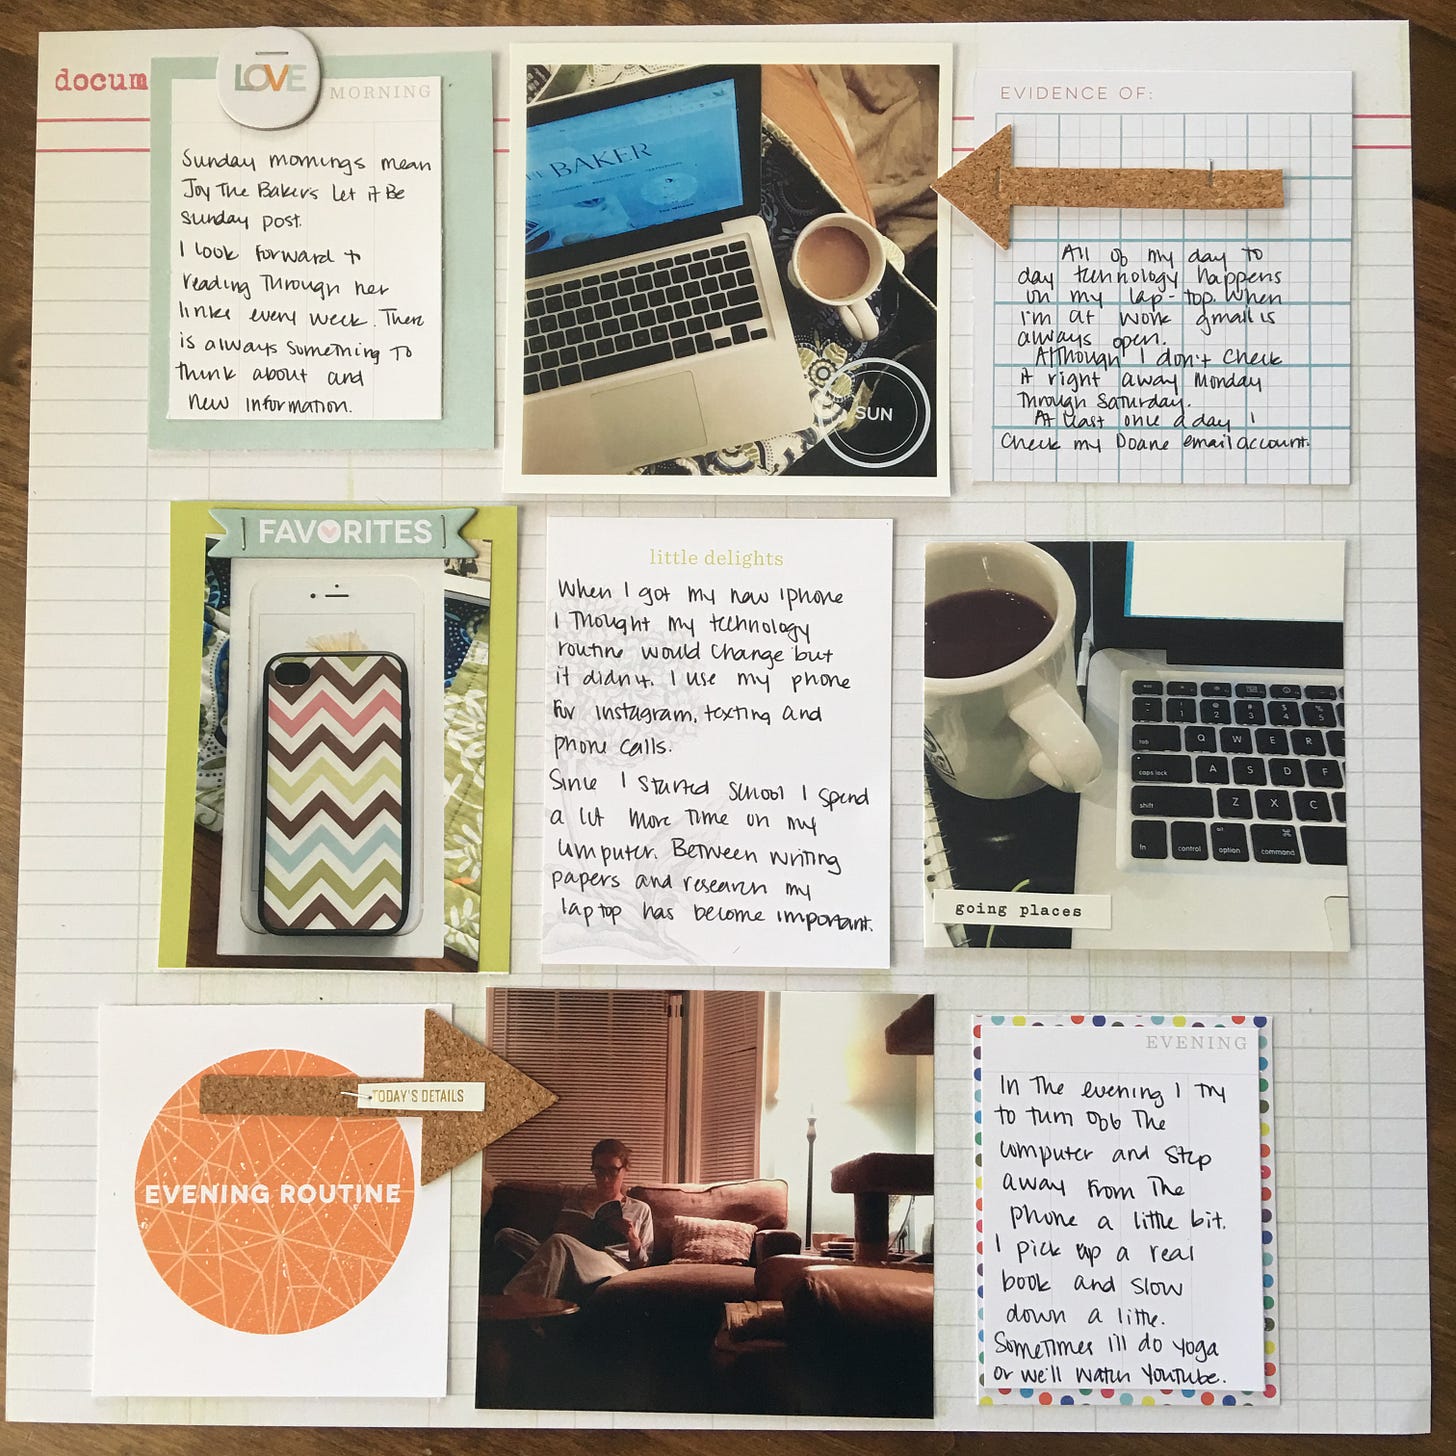 docum
LOVE
MORNING
Sunday mornings mean
Joy The Baker's Let it Be
Sunday post.
I look forward to
reading through her
links every week. There
is always something to
think about and
new information.
BAKER
SUN
EVIDENCE OF:
All of my day to
day technology happens
on my lap-top. When
I'm at work gmail is
always open.
Although I don't check
it right away Monday
through Saturday.
At least once a day I
check my Doane email account.
FAVORITES
little delights
When I got my new iphone
I thought my technology
routine would change but
it didn't. I use my phone
for instagram, texting and
phone calls.
Since I started school I spend
a lot more time on my
computer. Between writing
papers and research my
laptop has become important.
tab
Q W E R
caps lock
A S D F
shift
Z X C
fn control option command
going places
TODAY'S DETAILS
EVENING ROUTINE
EVENING
In the evening I try
to turn off the
computer and step
away from the
phone a little bit.
I pick up a real
book and slow
down a little.
Sometimes I'll do yoga
or we'll watch YouTube.